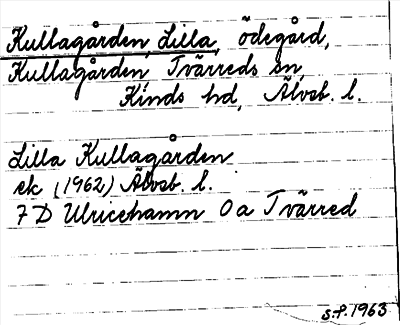 Kullagården, Lilla, ödegård,
Kullagården, Tvärreds sn,
Kinds hd, Älvsb. l.
Lilla Kullagården
ek (1962) Älvsb. l.
7D Ulricehamn 0a Tvärred
S.P. 1963